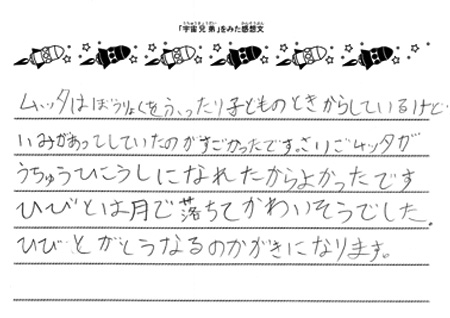 うちゅうきょうだい　かんそうぶん
「宇宙兄弟」をみた感想文
ムッタはぼうりょくをふったり子どものときからしているけど
いみがあってしていたのがすごかったです。さいごムッタが
うちゅうひこうしになれたからよかったです
ひびとは月で落ちてかわいそうでした。
ひびとがどうなるのかがきになります。